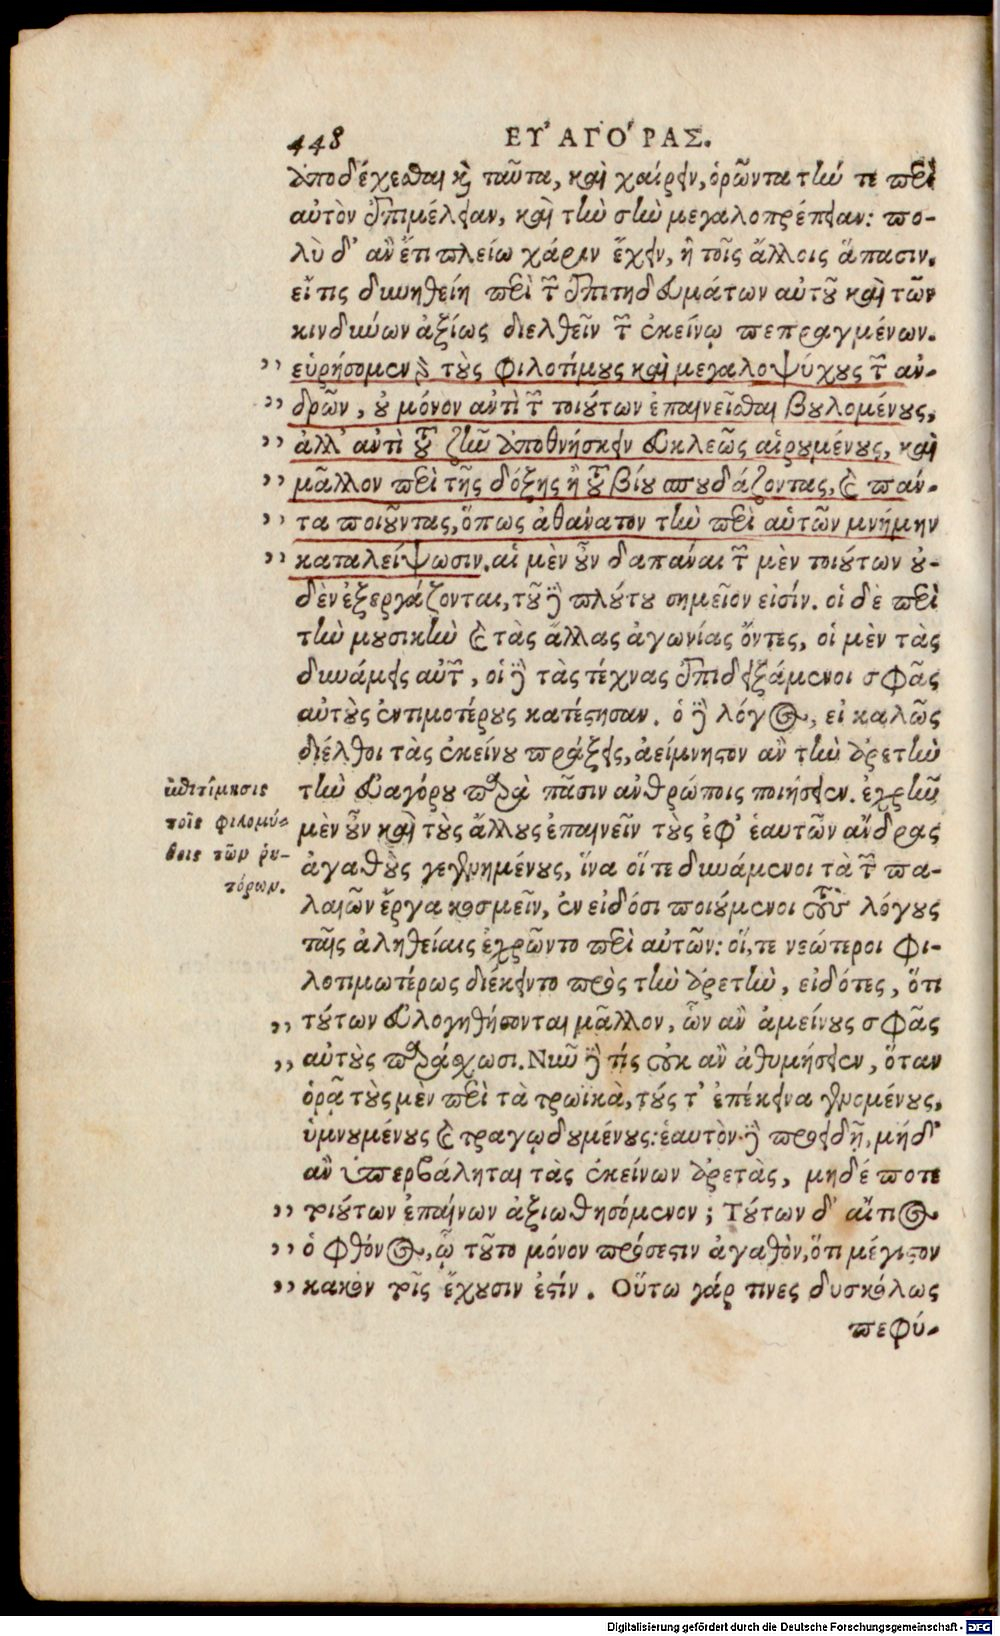 448 ΕΥ᾽ΑΓΟ΄ΡΑΣ.
ἀποδέχεσθαι καὶ ταῦτα, καὶ χαίρειν, ὁρῶντα τήν τε περὶ
αὐτὸν ἐπιμέλειαν, καὶ τὴν σὴν μεγαλοπρέπειαν: πο-
λὺ δ᾽ ἂν ἔτι πλείω χάριν ἔχειν, ἢ τοῖς ἄλλοις ἅπασιν.
εἴ τις δυνηθείη περὶ τῶν ἐπιτηδευμάτων αὐτοῦ καὶ τῶν
κινδύνων ἀξίως διελθεῖν τῶν ἐκείνῳ πεπραγμένων.
,, εὑρήσομεν γὰρ τοὺς φιλοτίμους καὶ μεγαλοψύχους τῶν ἀν-
,, δρῶν, οὐ μόνον ἀντὶ τῶν τοιούτων ἐπαινεῖσθαι βουλομένους,
,, ἀλλ᾽ ἀντὶ τοῦ ζῆν ἀποθνήσκειν εὐκλεῶς αἱρουμένους, καὶ
,, μᾶλλον περὶ τῆς δόξης ἢ τοῦ βίου σπουδάζοντας, καὶ πάν-
,, τα ποιοῦντας, ὅπως ἀθάνατον τὴν περὶ αὑτῶν μνήμην
,, καταλείψωσιν. αἱ μὲν οὖν δαπάναι τῶν μὲν τοιούτων οὐ-
δὲν ἐξεργάζονται, τοῦ δὲ πλούτου σημεῖον εἰσίν. οἱ δὲ περὶ
τὴν μουσικὴν καὶ τὰς ἄλλας ἀγωνίας ὄντες, οἱ μὲν τὰς
δυνάμεις αὐτῶν, οἱ δὲ τὰς τέχνας ἐπιδειξάμενοι σφᾶς
αὐτοὺς ἐντιμοτέρους κατέστησαν. ὁ δὲ λόγος, εἰ καλῶς
διέλθοι τὰς ἐκείνου πράξεις, ἀείμνηστον ἂν τὴν ἀρετὴν
τὴν Εὐαγόρου παρὰ πᾶσιν ἀνθρώποις ποιήσειεν. ἐχρῆν
μὲν οὖν καὶ τοὺς ἄλλους ἐπαινεῖν τοὺς ἐφ᾽ ἑαυτῶν ἄνδρας
ἀγαθοὺς γεγενημένους, ἵνα οἵ τε δυνάμενοι τὰ τῶν πα-
λαιῶν ἔργα κοσμεῖν, ἐν εἰδόσι ποιούμενοι τοὺς λόγους
ταῖς ἀληθείαις ἐχρῶντο περὶ αὐτῶν: οἵ,τε νεώτεροι φι-
λοτιμωτέρως διέκειντο πρὸς τὴν ἀρετὴν, εἰδότες, ὅτι
,, τούτων εὐλογηθήσονται μᾶλλον, ὧν ἂν ἀμείνους σφᾶς
,, αὐτοὺς παράσχωσι. Νῦν δὲ τίς οὐκ ἂν ἀθυμήσειεν, ὅταν
ὁρᾷ τοὺς μὲν περὶ τὰ τρωϊκὰ, τούς τ᾽ ἐπέκεινα γενομένους,
ὑμνουμένους καὶ τραγῳδουμένους: ἑαυτὸν δὲ προειδῇ, μήδ᾽
ἂν ὑπερβάληται τὰς ἐκείνων ἀρετὰς, μηδέποτε
,, τοιούτων ἐπαίνων ἀξιωθησόμενον; Τούτων δ᾽ αἴτιος
,, ὁ φθόνος, ᾧ τοῦτο μόνον πρόσεστιν ἀγαθὸν, ὅτι μέγιστον
,, κακὸν τοῖς ἔχουσιν ἐστίν. Οὕτω γάρ τινες δυσκόλως
πεφύ-
ἐπιτίμησις
τοῖς φιλομύ-
θοις τῶν ῥη-
τόρων.
Digitalisierung gefördert durch die Deutsche Forschungsgemeinschaft - DFG